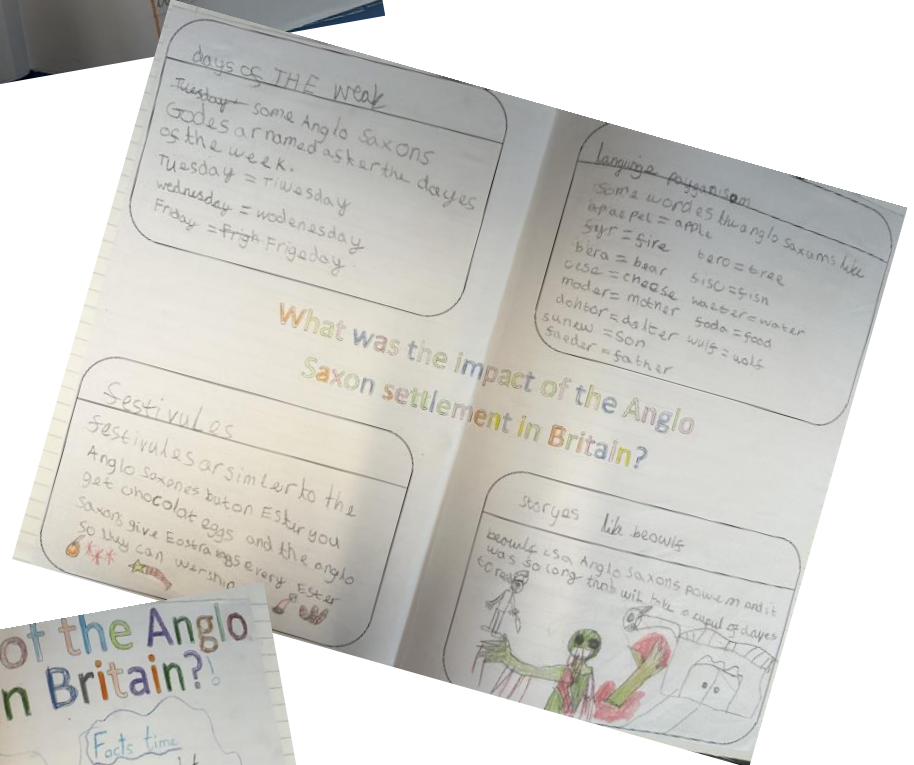 days os THE weak
Tuesday some Anglo Saxons
Godes ar named asker the dayes
os the week.
Tuesday = Tiwesday
wednesday = wodenesday
Friday = Frigh Frigeday.
language payganisom
some wordes the anglo saxums like
apaepel = apple
fyr = fire bero = tree
bera = bear fisc = fish
cese = cheese waeter = water
moder = mother foda = food
dohtor = dalter wulf = wolf
sunew = son
faeder = father
What was the impact of the Anglo
Saxon settlement in Britain?
Sestivules
festivules ar simler to the
Anglo Saxones but on Estur you
get chocolat eggs and the anglo
saxons give Eostra eggs every Ester
so they can worship
storyes like beowulf
beowulf is a Anglo Saxons powem and it
was so long that
to read
of the Anglo
n Britain?
Facts time